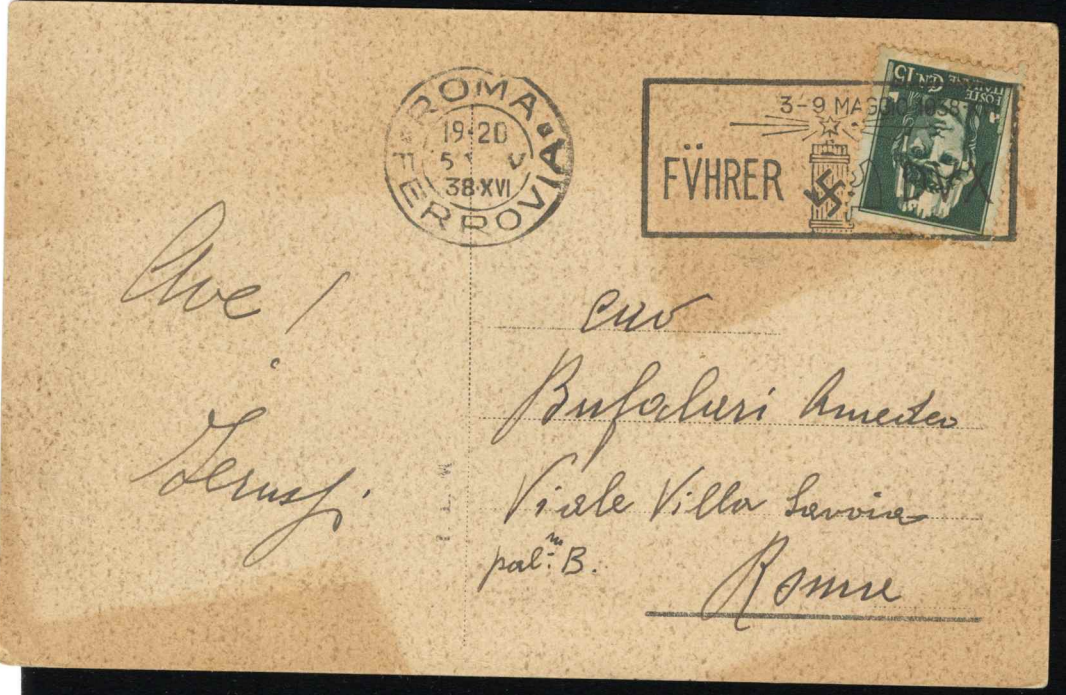 ROMA FERROVIA
19-20
5 V
38·XVI
3-9 MAGGIO 1938-
FÜHRER DVX
POSTE ITALIANE CEN.15
Ave!
Cav
Bufalari Amedeo
Viale Villa Savoia
pal.na B.
Roma